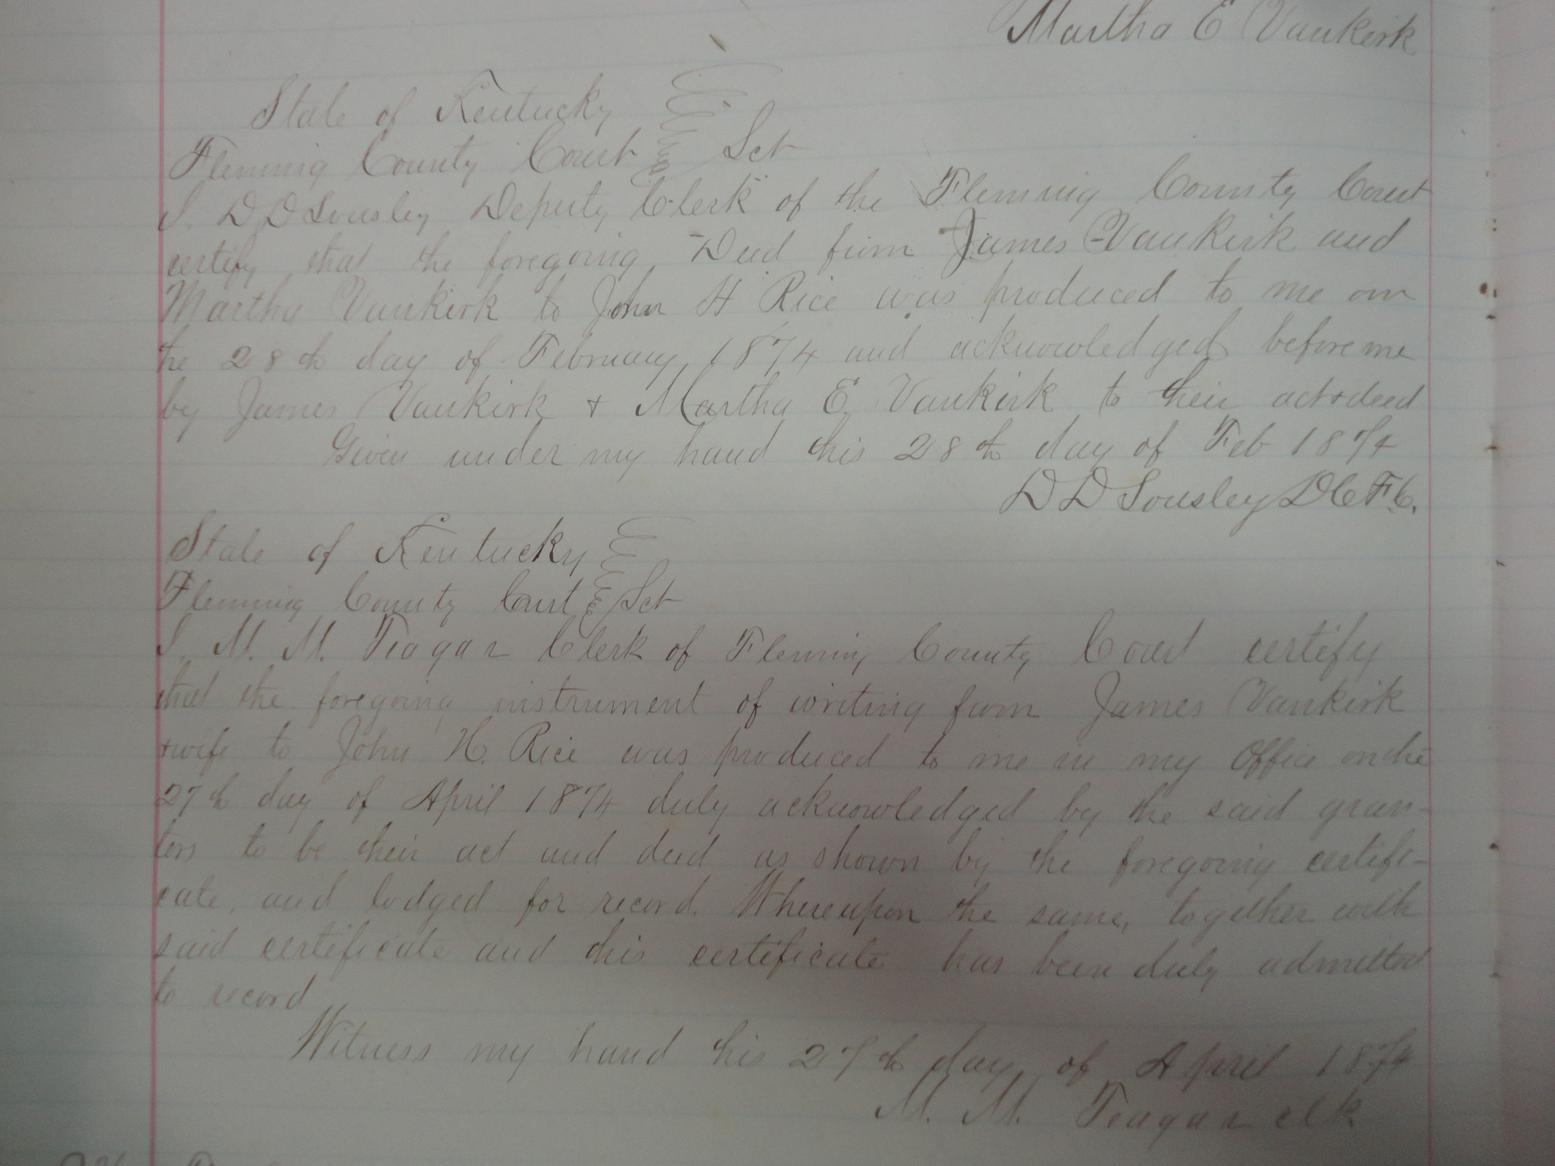 Martha E Vankirk
State of Kentucky
Fleming County Court Sct
I. D D Sousley Deputy Clerk of the Fleming County Court
certify that the foregoing Deed from James Vankirk and
Martha Vankirk to John H Rice was produced to me on
the 28th day of February 1874 and acknowledged before me
by James Vankirk + Martha E. Vankirk to their act+deed
Given under my hand this 28th day of Feb 1874
D D Sousley D C F C.
State of Kentucky
Fleming County Court Sct
I. M. M. Teagar Clerk of Fleming County Court certify
that the foregoing instrument of writing from James Vankirk
+wife to John H. Rice was produced to me in my Office on the
27th day of April 1874 duly acknowledged by the said gran-
tors to be their act and deed as shown by the foregoing certifi-
cate, and lodged for record. Whereupon the same, together with
said certificate and this certificate has been duly admitted
to record
Witness my hand this 27th day of April 1874
M. M. Teagar clk